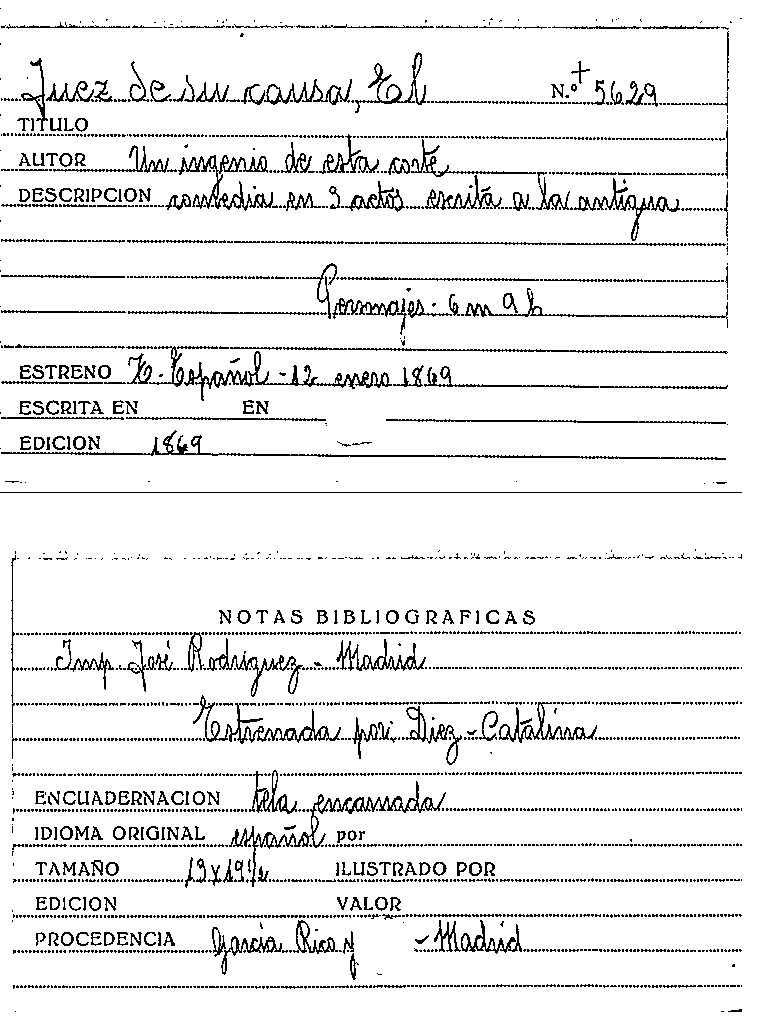 Juez de su causa, El N.º + 5629
TITULO
AUTOR Un ingenio de esta corte
DESCRIPCION comedia en 3 actos escrita a la antigua
Personajes: 6 m 9 h
ESTRENO T. Español - 12 enero 1869
ESCRITA EN EN
EDICION 1869
NOTAS BIBLIOGRAFICAS
Imp. José Rodriguez - Madrid
Estrenada por: Diez - Catalina
ENCUADERNACION tela encarnada
IDIOMA ORIGINAL español por
TAMAÑO 13 x 19 1/2 ILUSTRADO POR
EDICION VALOR
PROCEDENCIA Garcia Rico y - Madrid